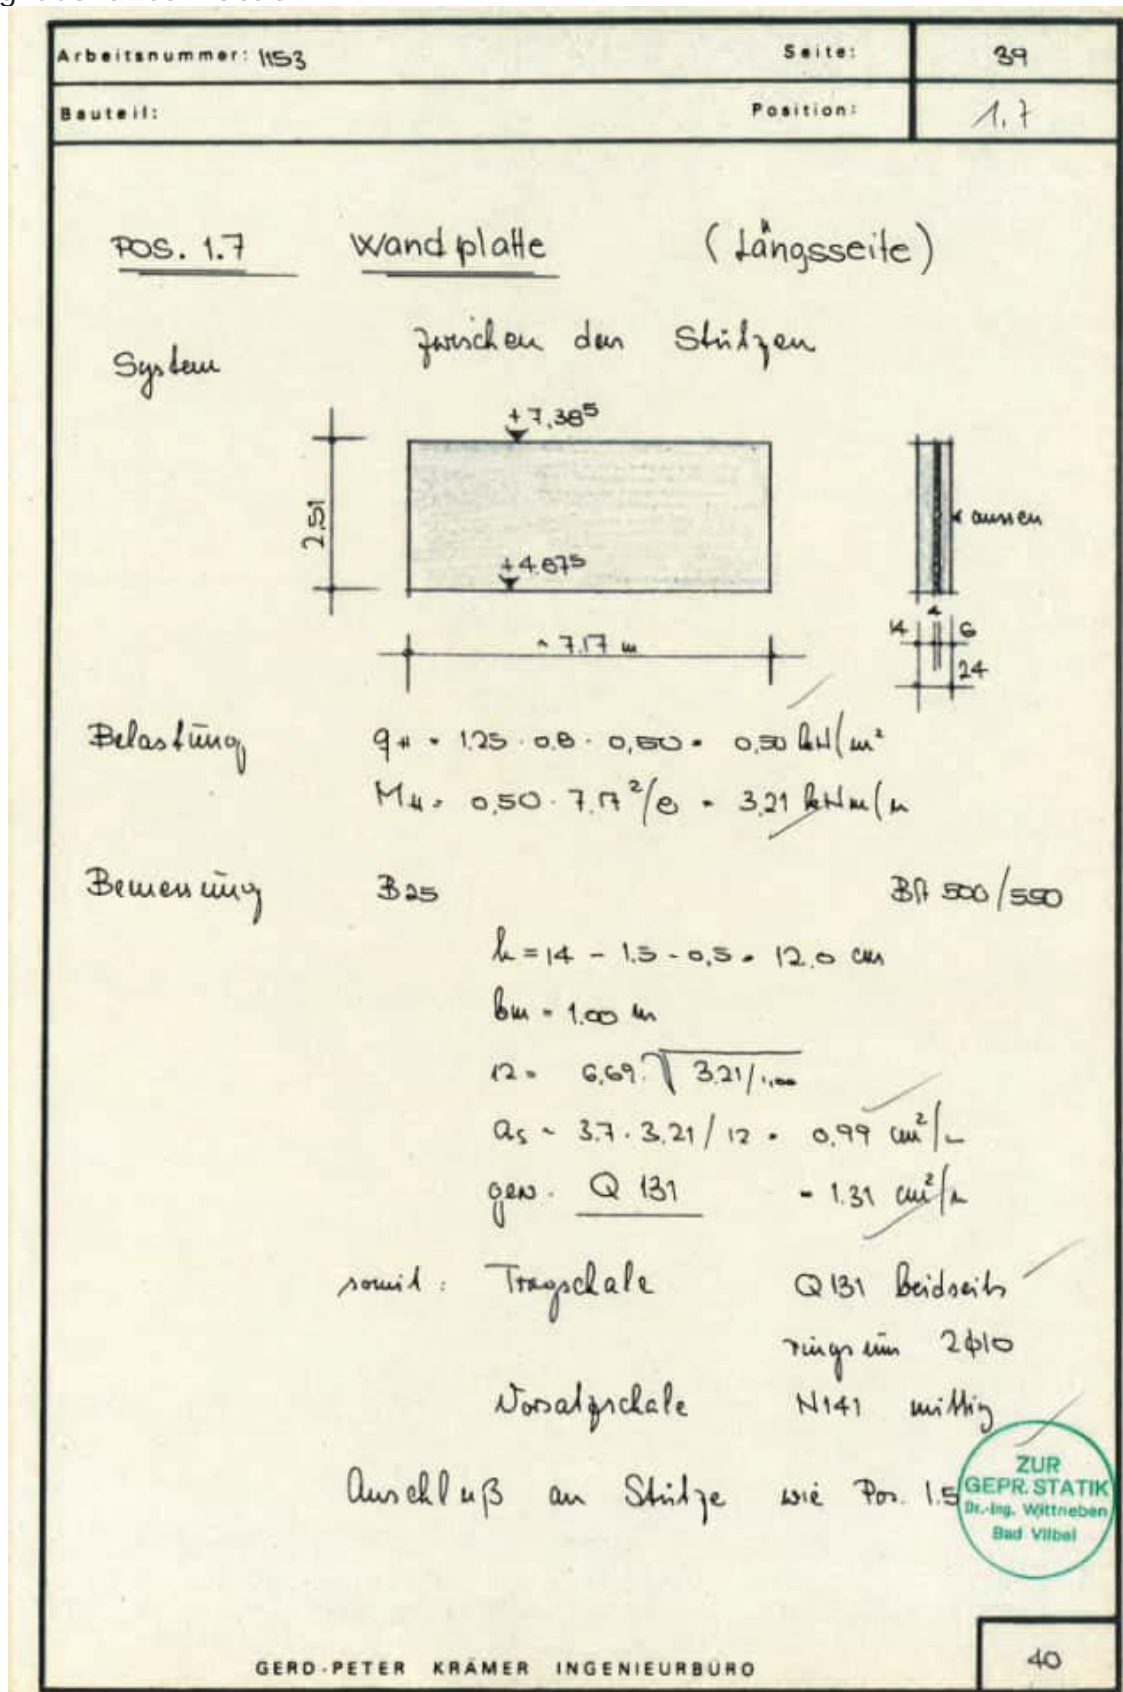 Arbeitsnummer: 1153 Seite: 39
Bauteil: Position: 1,7
POS. 1.7 Wandplatte (Längsseite)
System zwischen den Stützen
+7,38⁵
2,51
aussen
+4.87⁵
4
14 6
~ 7,17 m
24
Belastung qH = 1.25 · 0.8 · 0,50 = 0,50 kN/m²
MH = 0,50 · 7,17²/8 = 3,21 kNm/m
Bemessung B25 BSt 500/550
h = 14 - 1.5 - 0,5 = 12.0 cm
bm = 1.00 m
12 = 6,69 · √3.21/1,00
as ~ 3.7 · 3.21 / 12 = 0,99 cm²/m
gew. Q 131 = 1.31 cm²/m
somit: Tragschale Q 131 beidseits
rings um 2ϕ10
Vorsatzschale N141 mittig
Anschluß an Stütze wie Pos. 1.5
ZUR
GEPR. STATIK
Dr.-Ing. Wittrieben
Bad Vilbel
GERD-PETER KRÄMER INGENIEURBÜRO
40